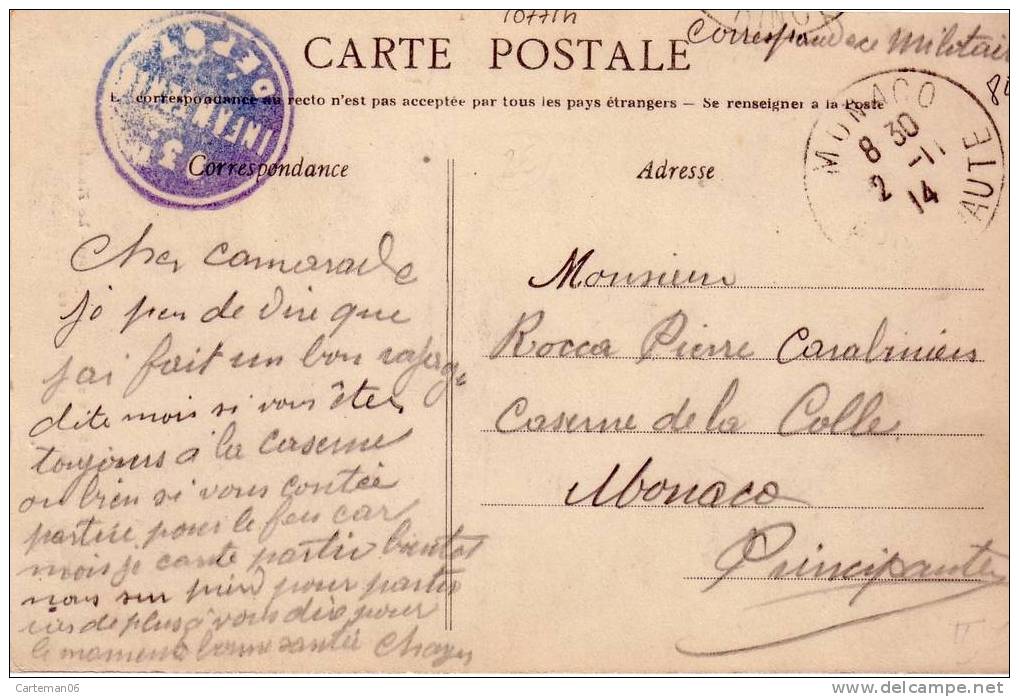 1077M
Correspondace Militair
CARTE POSTALE
correspondance au recto n'est pas acceptée par tous les pays étrangers — Se renseigner à la Poste
3
INFANTERIE
DÉPOT
MONACO
8 30
2 -11
14
AUTE
Correspondance
Adresse
Cher camarade
je peu de dire que
j'ai fait un bon
dite mois si vous êtes
toujours a la caserne
ou bien si vous contée
partire pour le feu car
mois je conte partir bientot
nous sur pied pour parti
rien de plus à vous dire pour
le moment bonne santée
Monsieur
Rocca Pierre Carabiniers
Caserne de la Colle
Monaco
Principautée
Carteman06
www.delcampe.net